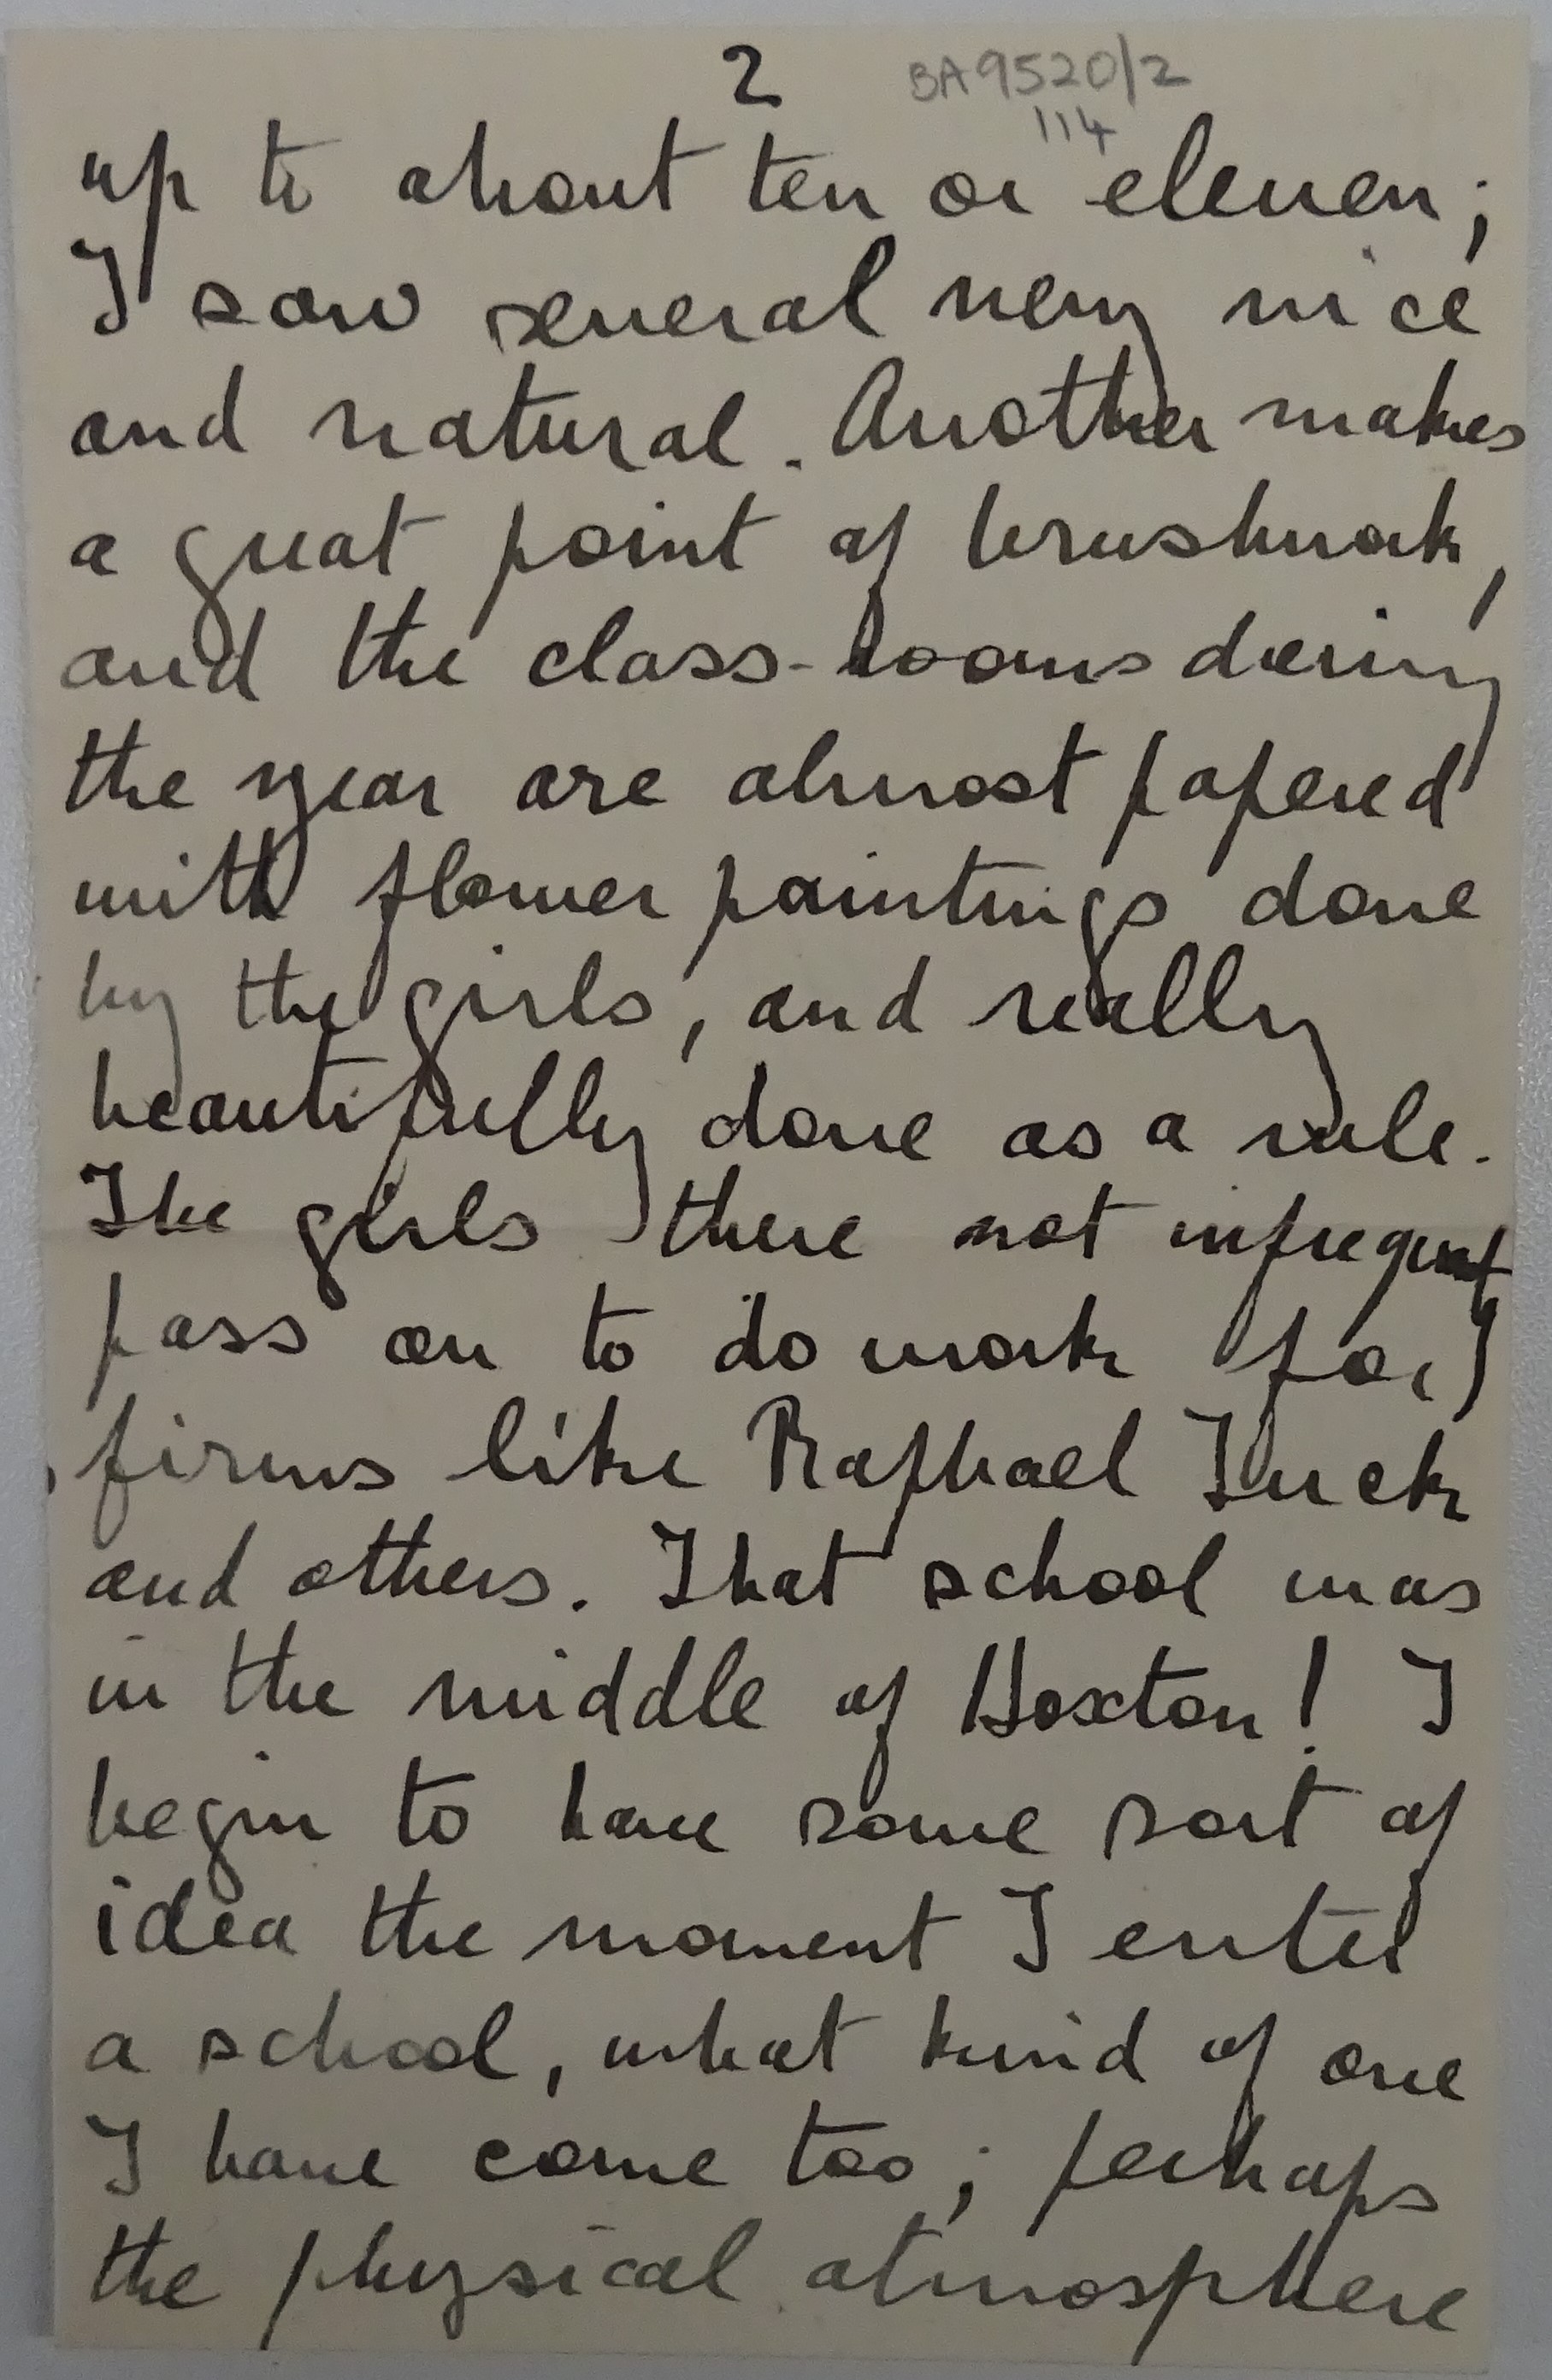 2
BA9520/2
114
up to about ten or eleven;
I saw several very nice
and natural. Another makes
a great point of brushwork,
and the class-rooms during
the year are almost papered
with flower paintings done
by the girls, and really
beautifully done as a rule.
The girls there not infrequent
pass on to do work for
firms like Raphael Tuck
and others. That school was
in the middle of Hoxton! I
begin to have some sort of
idea the moment I enter
a school, what kind of one
I have come too; perhaps
the physical atmosphere